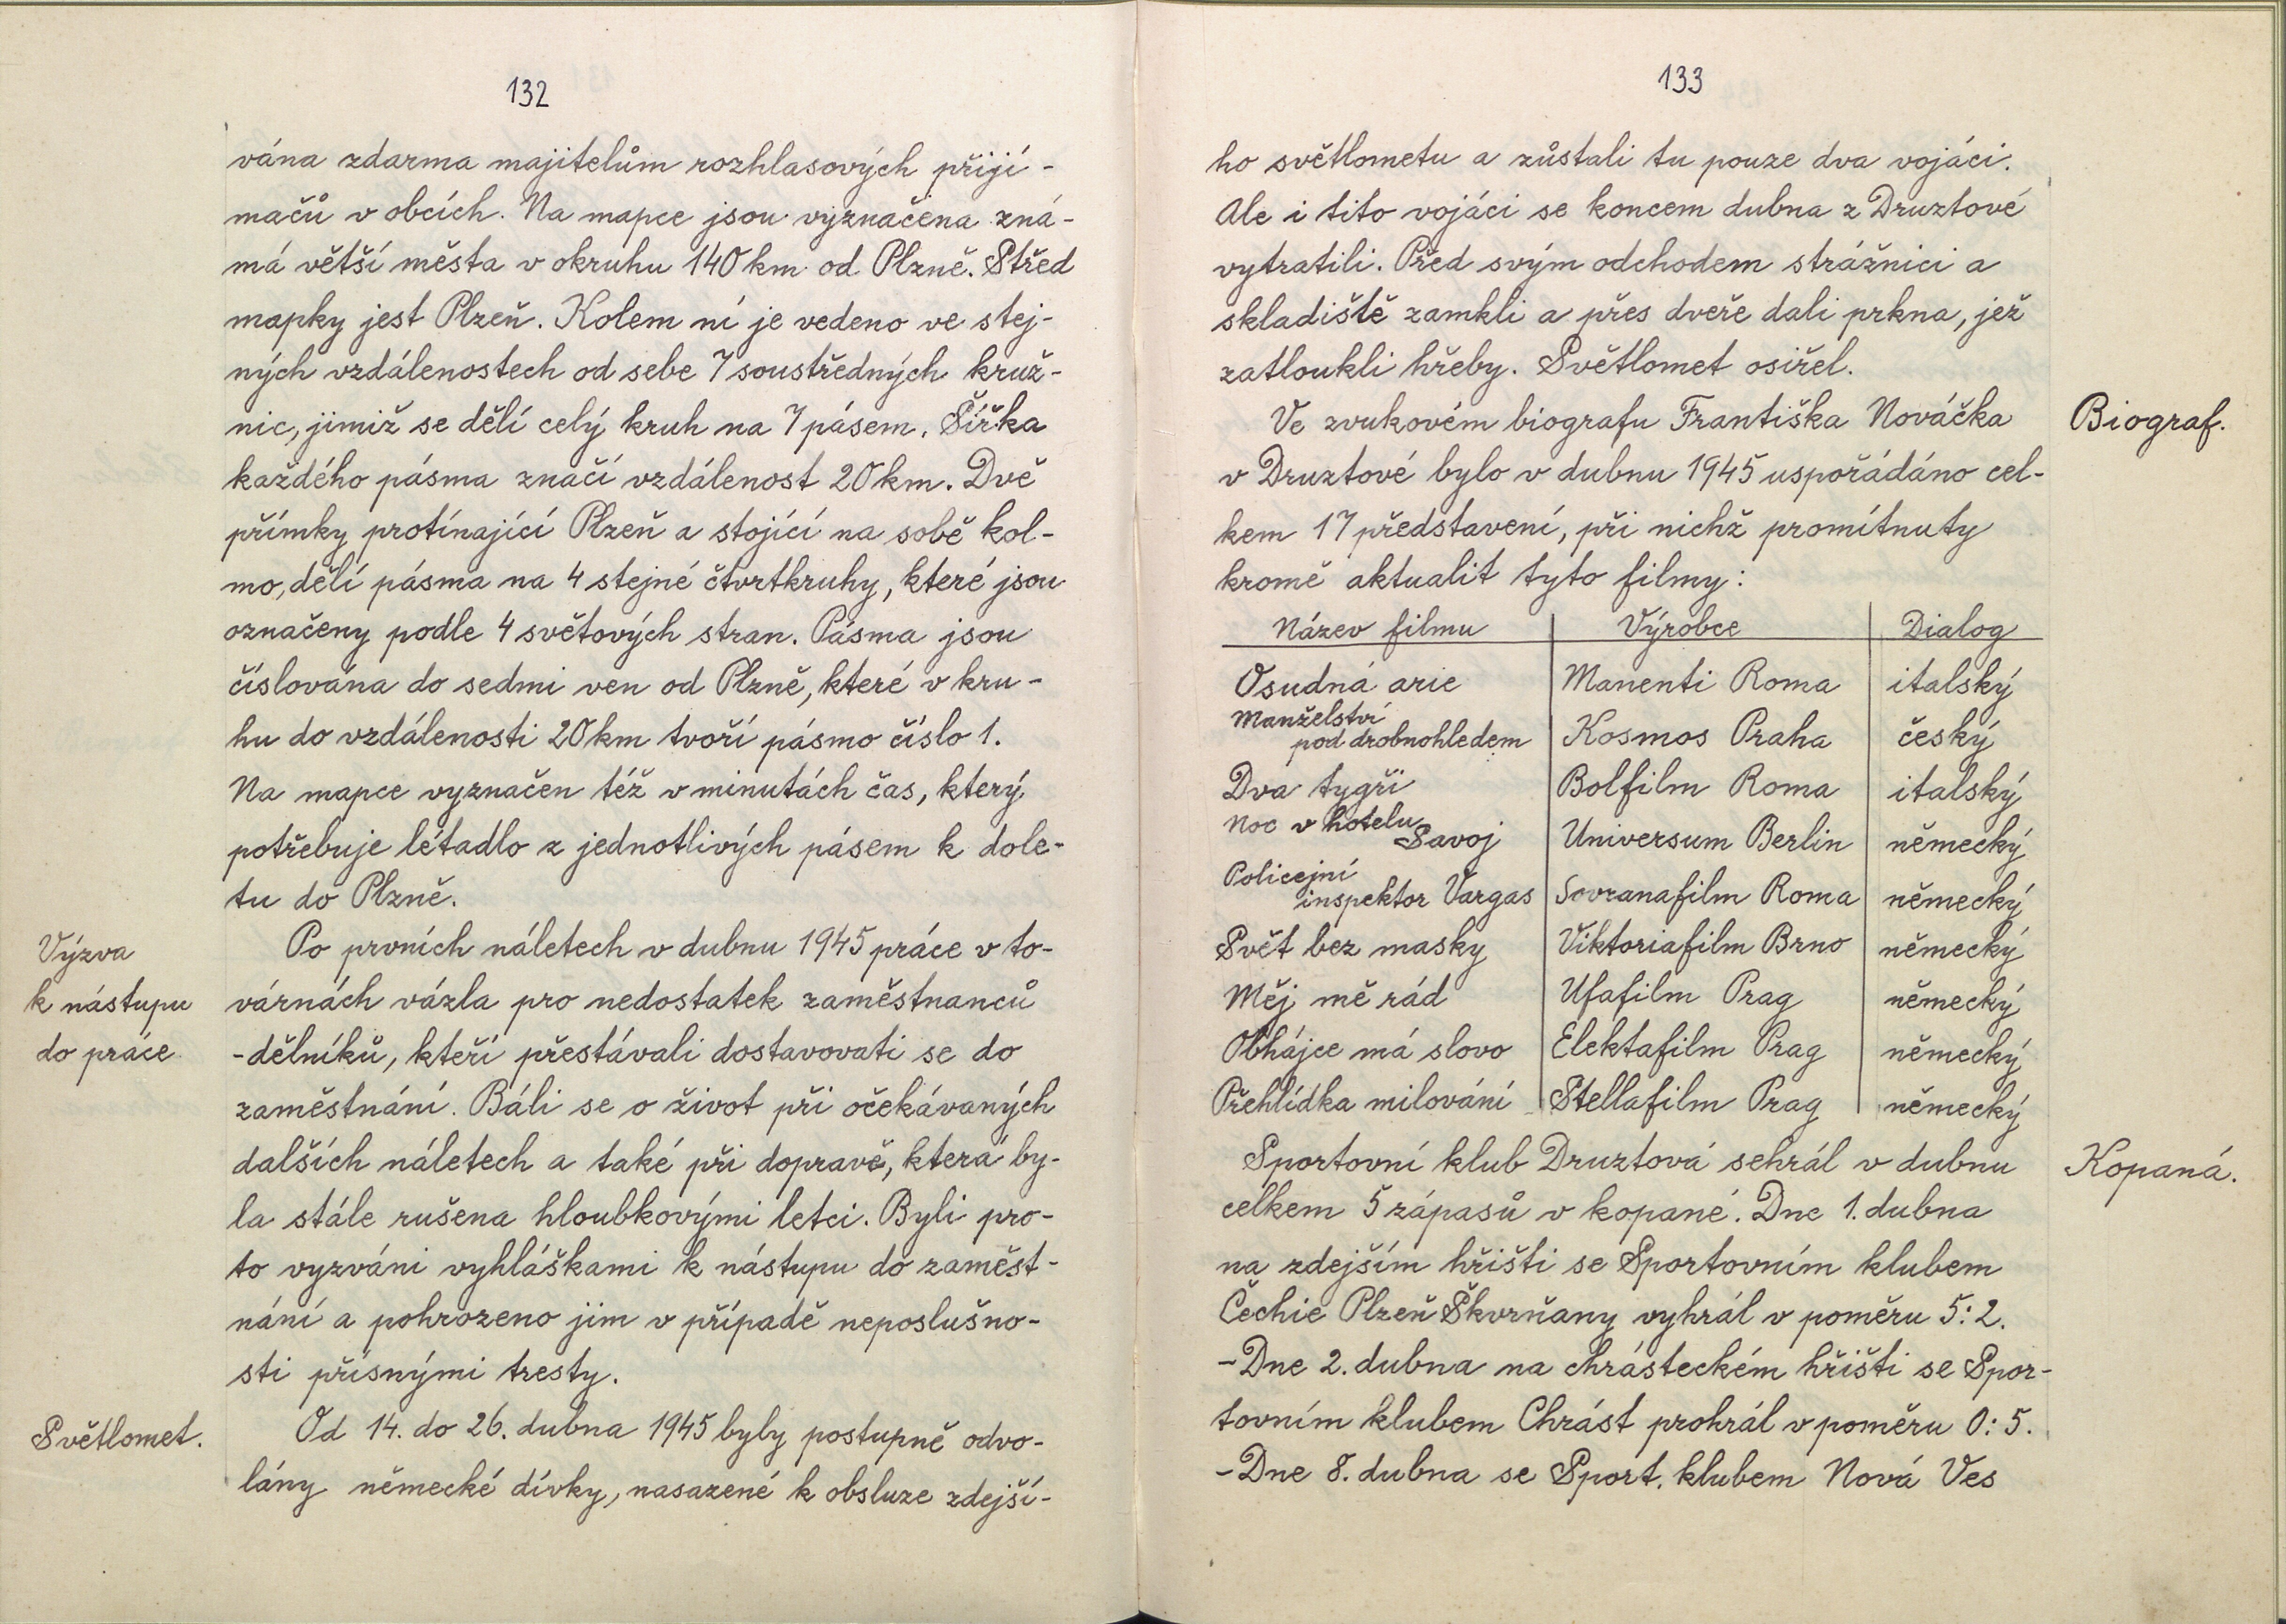 132
vána zdarma majitelům rozhlasových přijí-
mačů v obcích. Na mapce jsou vyznačena zná-
má větší města v okruhu 140 km od Plzně. Střed
mapky jest Plzeň. Kolem ní je vedeno ve stej-
ných vzdálenostech od sebe 7 soustředných kruž-
nic, jimiž se dělí celý kruh na 7 pásem. Šířka
každého pásma značí vzdálenost 20 km. Dvě
přímky protínající Plzeň a stojící na sobě kol-
mo, dělí pásma na 4 stejné čtvrtkruhy, které jsou
označeny podle 4 světových stran. Pásma jsou
číslována do sedmi ven od Plzně, které v kru-
hu do vzdálenosti 20 km tvoří pásmo číslo 1.
Na mapce vyznačen též v minutách čas, který
potřebuje létadlo z jednotlivých pásem k dole-
tu do Plzně.
Výzva
k nástupu
do práce
Po prvních náletech v dubnu 1945 práce v to-
várnách vázla pro nedostatek zaměstnanců
-dělníků, kteří přestávali dostavovati se do
zaměstnání. Báli se o život při očekávaných
dalších náletech a také při dopravě, která by-
la stále rušena hloubkovými letci. Byli pro-
to vyzváni vyhláškami k nástupu do zaměst-
nání a pohrozeno jim v případě neposlušno-
sti přísnými tresty.
Světlomet.
Od 14. do 26. dubna 1945 byly postupně odvo-
lány německé dívky, nasazené k obsluze zdejší-
133
ho světlometu a zůstali tu pouze dva vojáci.
Ale i tito vojáci se koncem dubna z Druztové
vytratili. Před svým odchodem strážnici a
skladiště zamkli a přes dveře dali prkna, jež
zatloukli hřeby. Světlomet osiřel.
Biograf.
Ve zvukovém biografu Františka Nováčka
v Druztové bylo v dubnu 1945 uspořádáno cel-
kem 17 představení, při nichž promítnuty
kromě aktualit tyto filmy:
Název filmu Výrobce Dialog
Osudná arie Manenti Roma italský
Manželství
pod drobnohledem Kosmos Praha český
Dva tygři Bolfilm Roma italský
Noc v hotelu
Savoj Universum Berlin německý
Policejní
inspektor Vargas Sovranafilm Roma německý
Svět bez masky Viktoriafilm Brno německý
Měj mě rád Ufafilm Prag německý
Obhájce má slovo Elektafilm Prag německý
Přehlídka milování Stellafilm Prag německý
Kopaná.
Sportovní klub Druztová sehrál v dubnu
celkem 5 zápasů v kopané. Dne 1. dubna
na zdejším hřišti se Sportovním klubem
Čechie Plzeň Škvrňany vyhrál v poměru 5:2.
-Dne 2. dubna na chrásteckém hřišti se Spor-
tovním klubem Chrást prohrál v poměru 0:5.
-Dne 8. dubna se Sport. klubem Nová Ves